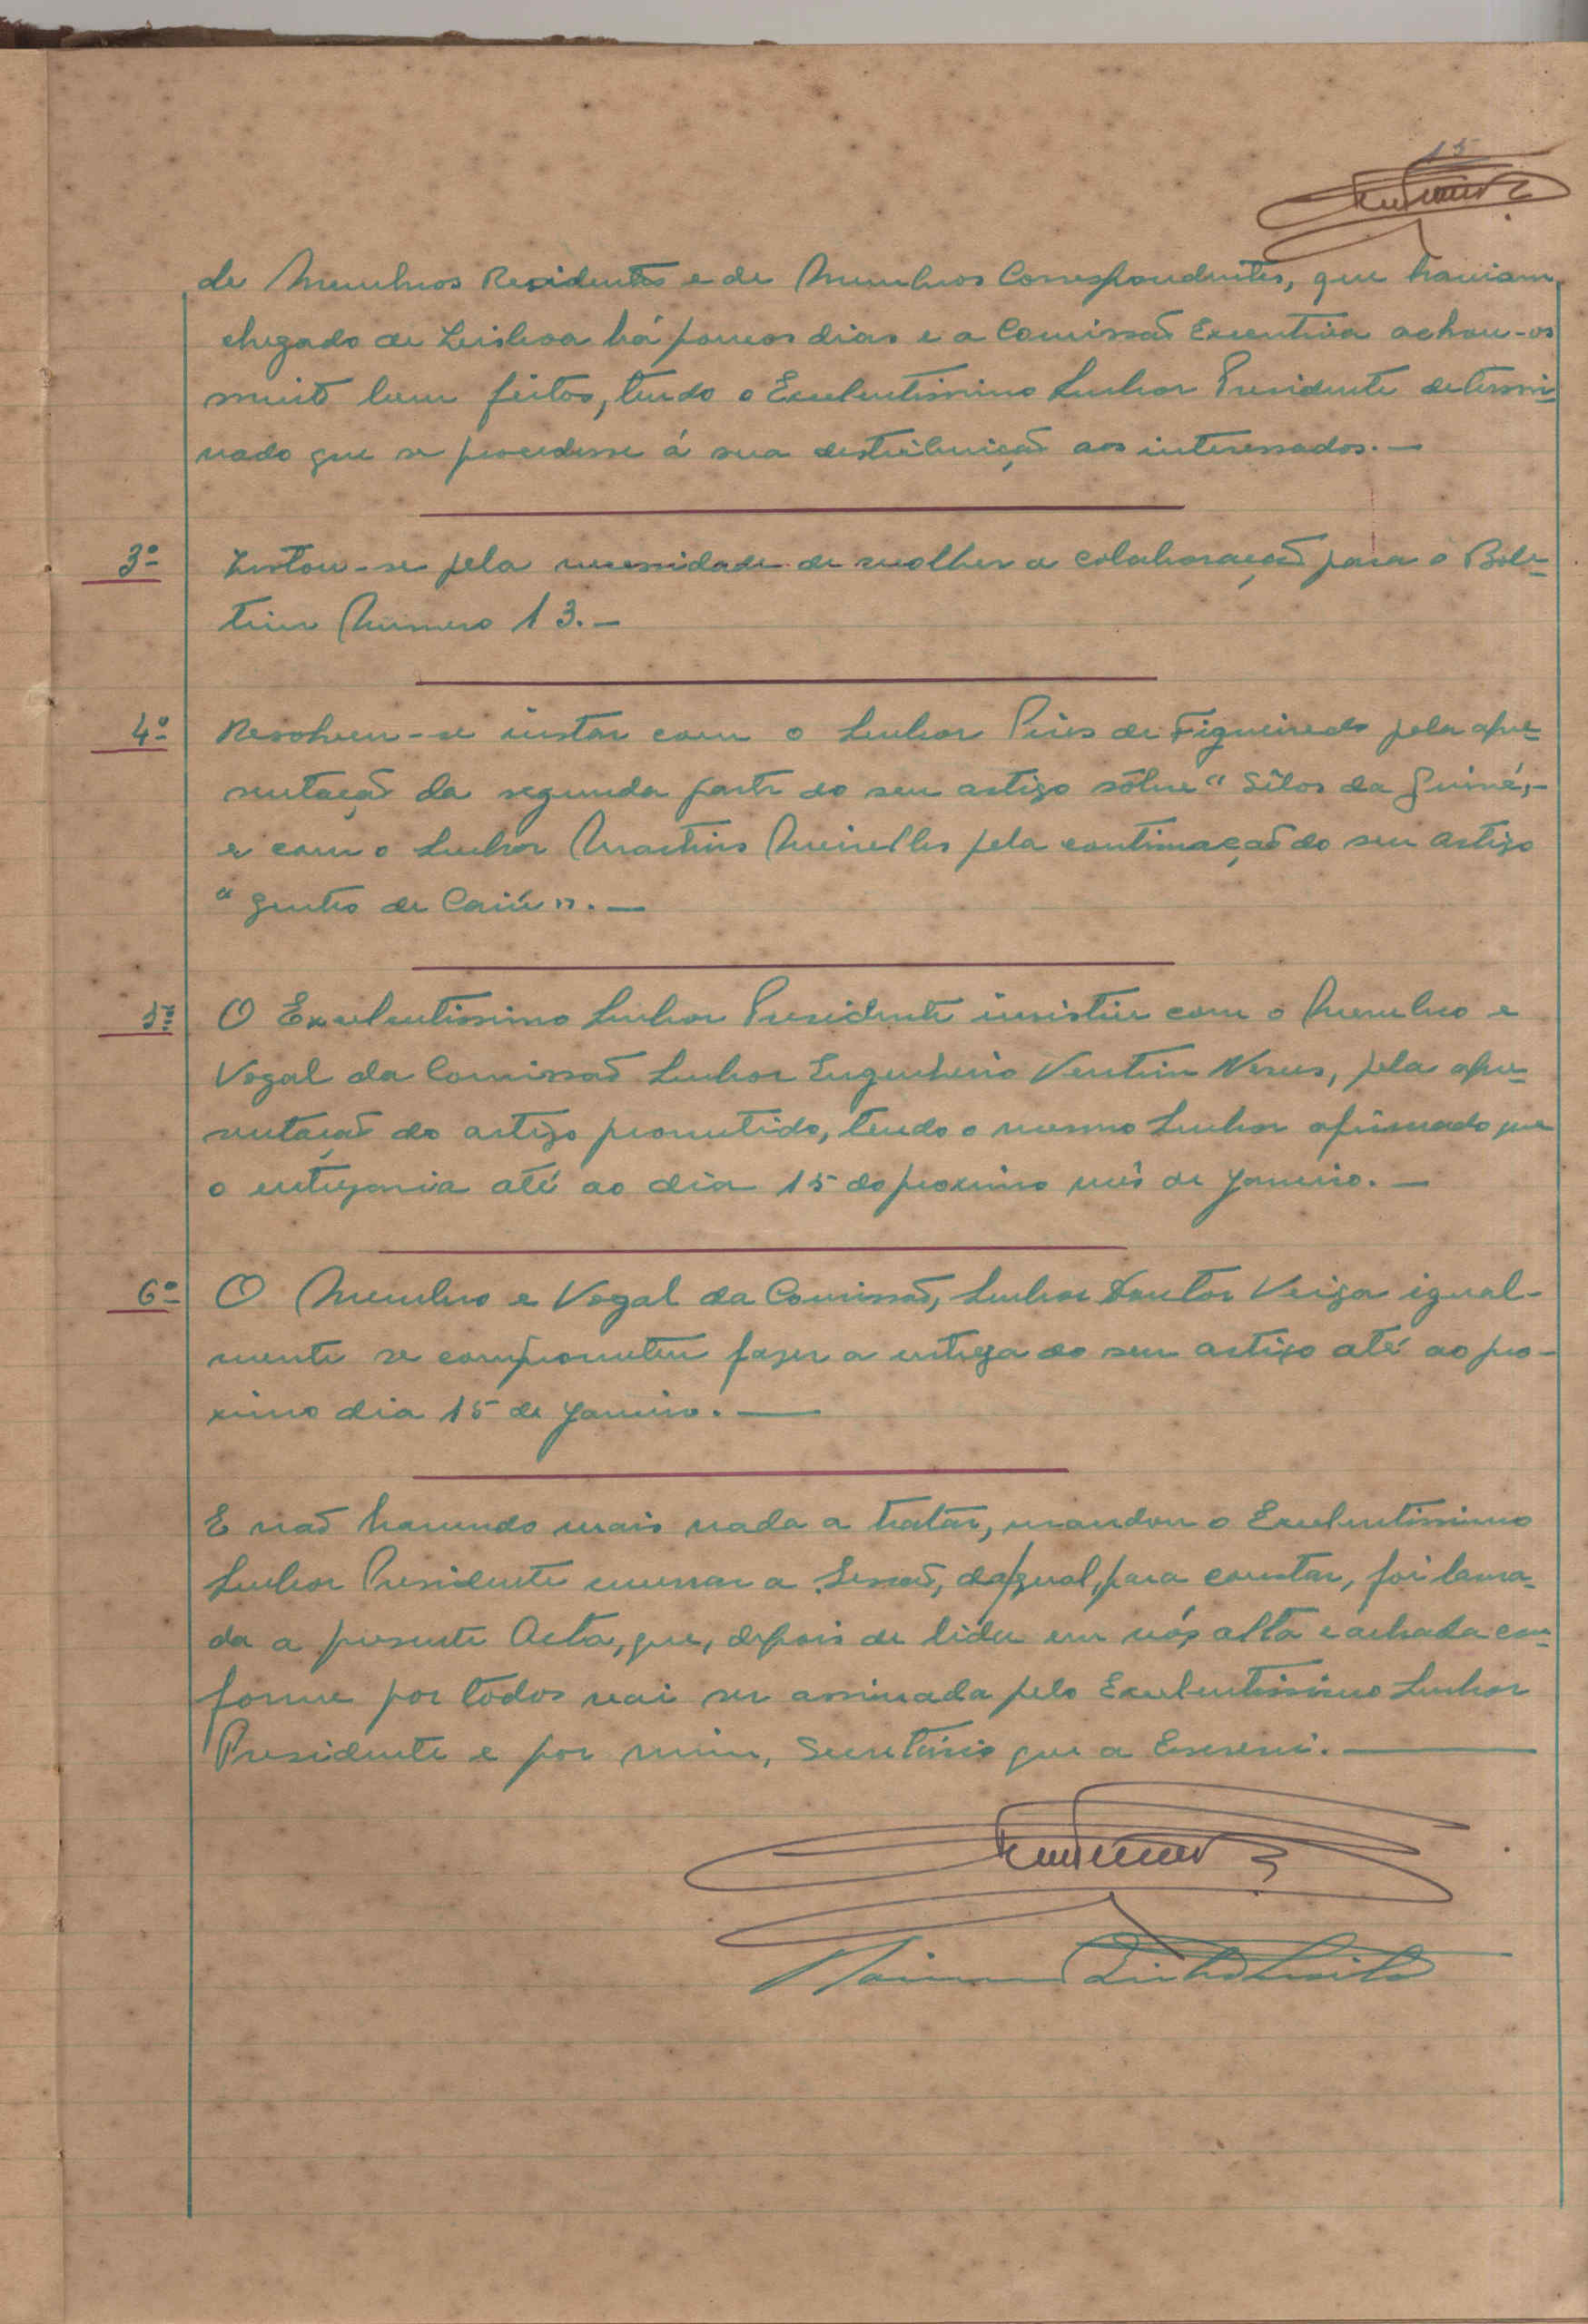 15
de Membros Residentes e de Membros Correspondentes, que haviam
chegado de Lisboa há poucos dias e a Comissão Executiva achou-os
muito bem feitos, tendo o Excelentissimo Senhor Presidente determi-
nado que se procedesse á sua destribuição aos interessados.—
3º
Instou-se pela necessidade de recolher a colaboração para o Bole-
tim Número 13.—
4º
Resolveu-se instar com o Senhor Pires de Figueiredo pela apre-
sentação da segunda parte do seu artigo sôbre "Sêlos da Guiné,-
e com o Senhor Martins Meirelles pela continuação do seu artigo
"Gentes de Caiú".—
5º
O Excelentissimo Senhor Presidente insistiu com o Membro e
Vogal da Comissão Senhor Engenheiro Ventim Neves, pela apre-
sentação do artigo prometido, tendo o mesmo Senhor afirmado que
o entregaria até ao dia 15 do proximo mês de Janeiro.—
6º
O Membro e Vogal da Comissão, Senhor Doutor Veiga igual-
mente se comprometeu fazer a entrega do seu artigo até ao pro-
ximo dia 15 de Janeiro.—
E não havendo mais nada a tratar, mandou o Excelentissimo
Senhor Presidente encerrar a Sessão, da qual, para constar, foi lavra-
da a presente Acta, que, depois de lida em vóz alta e achada con-
forme por todos vai ser assinada pelo Excelentissimo Senhor
Presidente e por mim, Secretário que a Escrevi.—